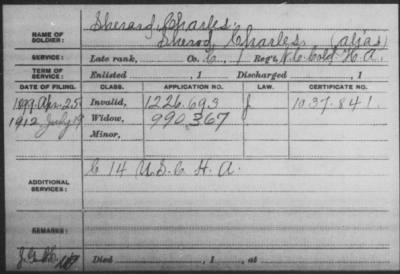 NAME OF SOLDIER: Sherard, Charles.
Sherod, Charles (alias)
SERVICE: Late rank, Co. C, 1 Reg't N.C. Cold. H.A.
TERM OF SERVICE: Enlisted , 1 Discharged , 1
DATE OF FILING. CLASS. APPLICATION NO. LAW. CERTIFICATE NO.
1899 Apr. 25 Invalid, 1226.693 1037.841.
1912 July 19 Widow, 990.367
Minor,
ADDITIONAL SERVICES: C 14 U.S.C.H.A.
REMARKS:
Died , 1 , at